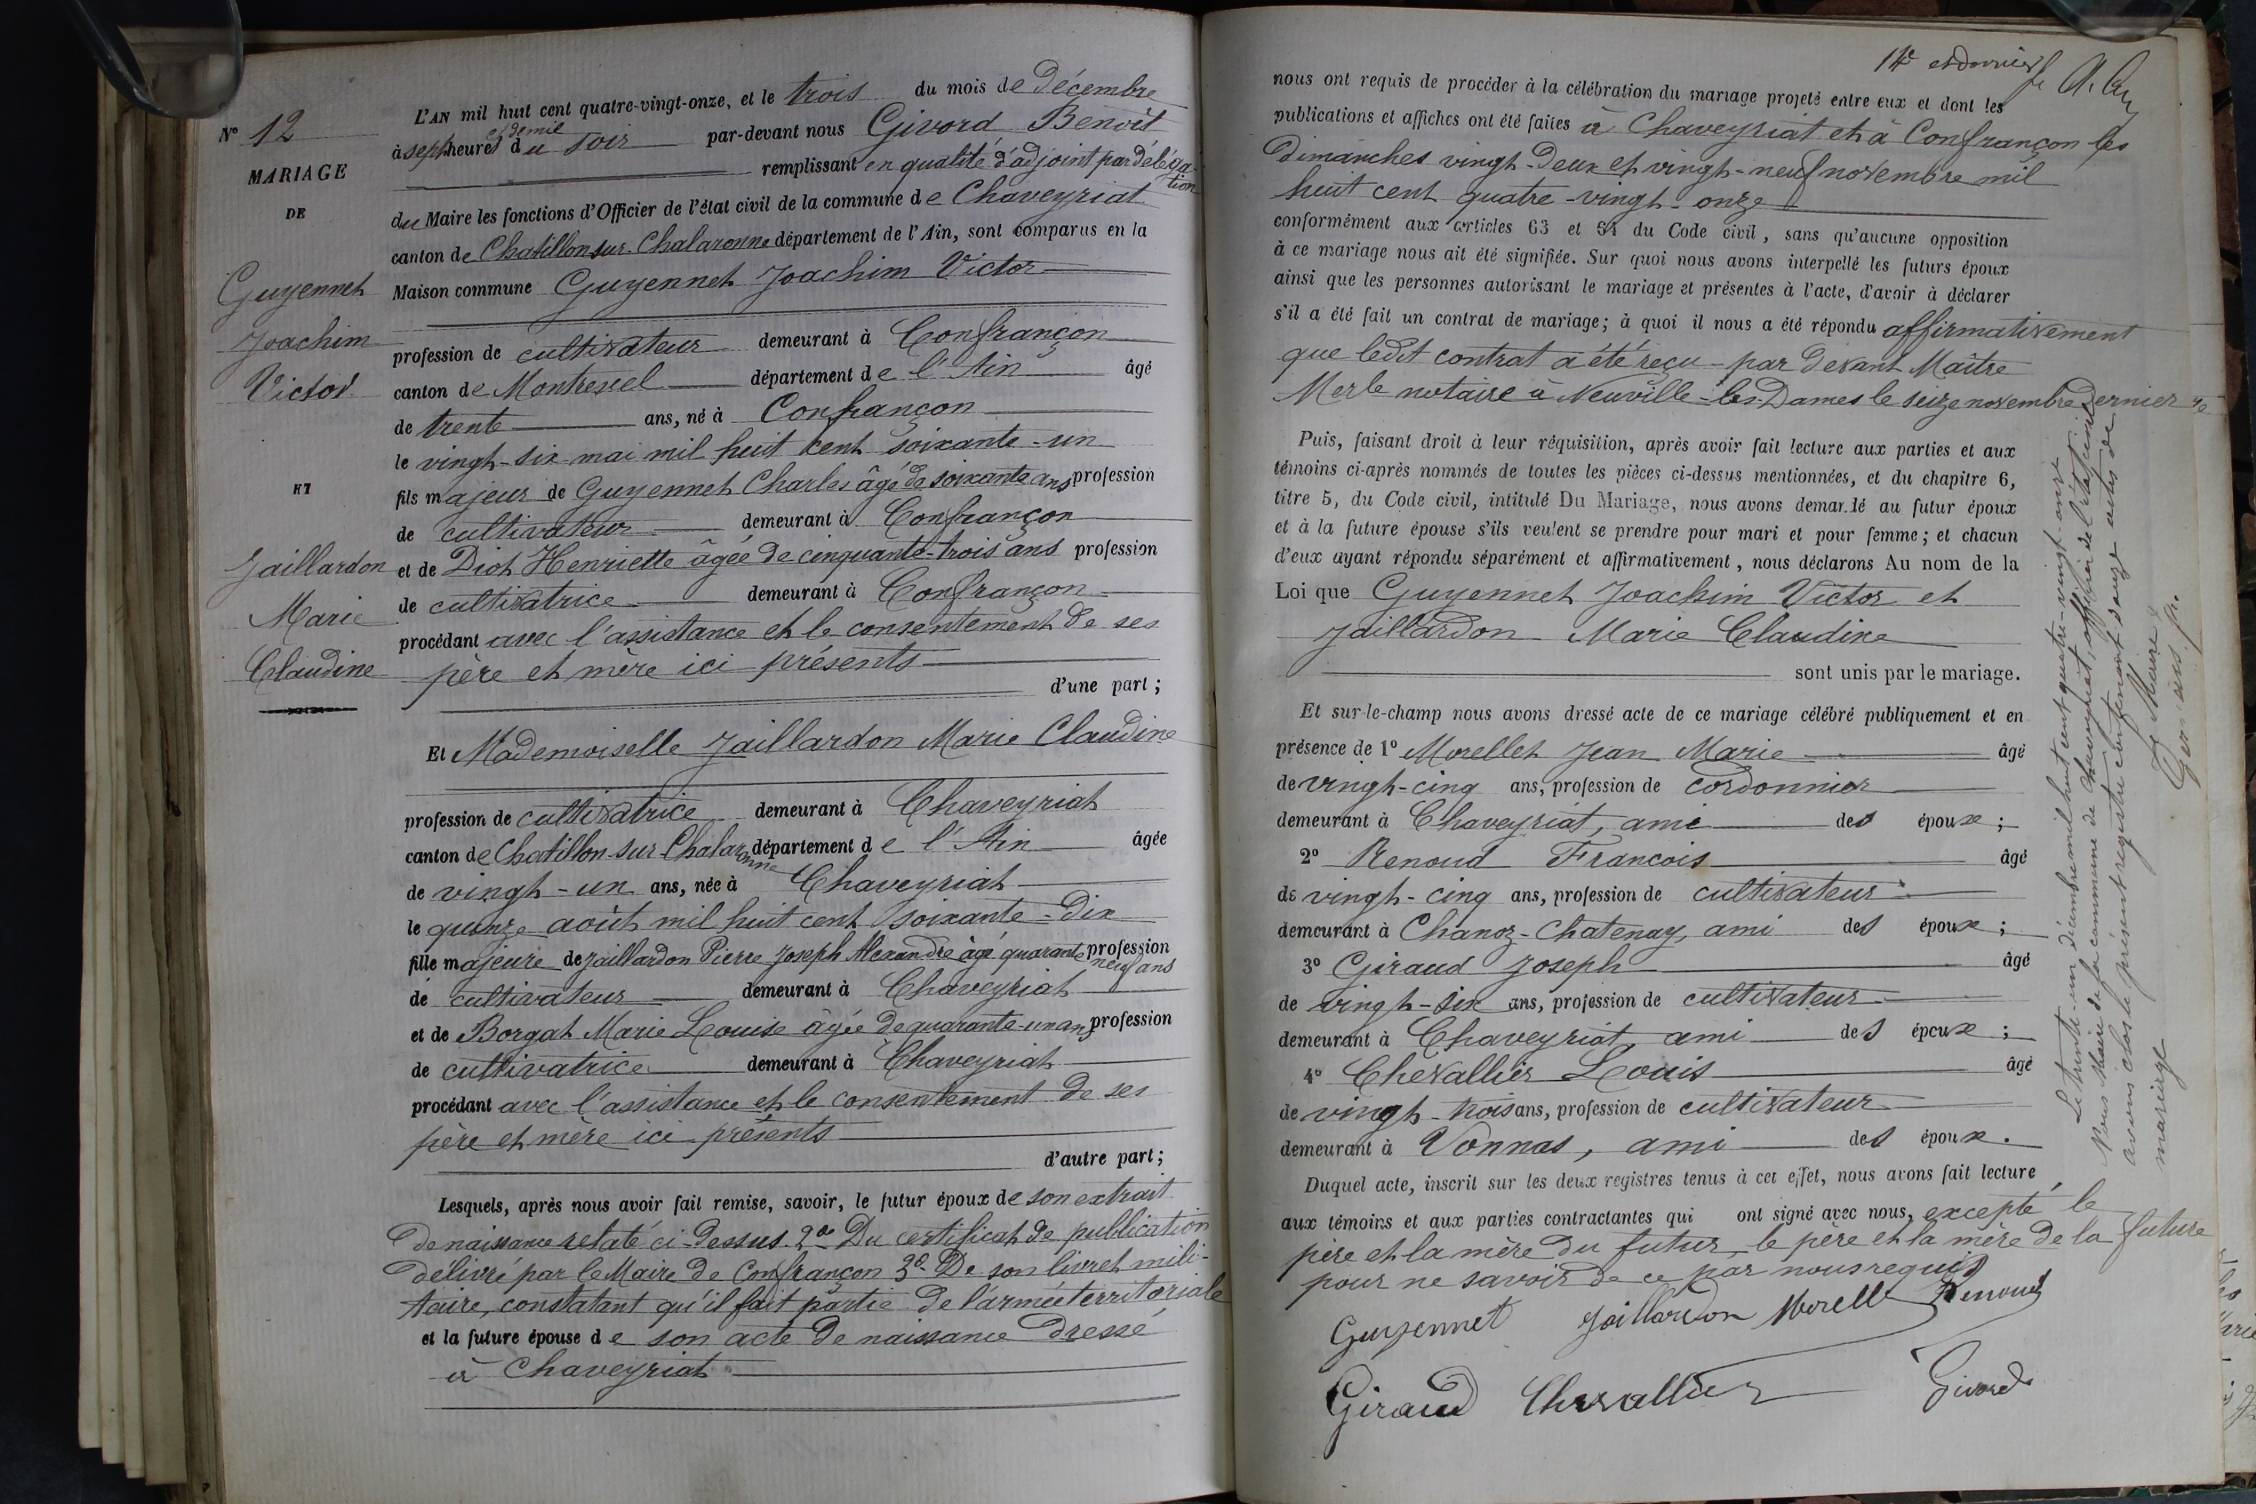 N° 12
MARIAGE
DE
Guyennet
Joachim
Victor
ET
Jaillardon
Marie
Claudine
L'AN mil huit cent quatre-vingt-onze, et le trois du mois de Décembre
à sept heures et demie du soir par-devant nous Givord Benoît
remplissant en qualité d'adjoint par déléga-
tion
du Maire les fonctions d'Officier de l'état civil de la commune de Chaveyriat
canton de Chatillon sur Chalaronne département de l'Ain, sont comparus en la
Maison commune Guyennet Joachim Victor
profession de cultivateur demeurant à Confrançon
canton de Montrevel département de l'Ain âgé
de trente ans, né à Confrançon
le vingt-six mai mil huit cent soixante-un
fils majeur de Guyennet Charles âgé de soixante ans profession
de cultivateur demeurant à Confrançon
et de Diot Henriette âgée de cinquante-trois ans profession
de cultivatrice demeurant à Confrançon
procédant avec l'assistance et le consentement de ses
père et mère ici présents
d'une part ;
Et Mademoiselle Jaillardon Marie Claudine
profession de cultivatrice demeurant à Chaveyriat
canton de Chatillon-sur-Chalaronne département de l'Ain âgée
de vingt-un ans, née à Chaveyriat
le quinze août mil huit cent soixante-dix
fille majeure de Jaillardon Pierre Joseph Alexandre âgé quarante neuf ans profession
de cultivateur demeurant à Chaveyriat
et de Borgat Marie Louise âgée de quarante-un ans profession
de cultivatrice demeurant à Chaveyriat
procédant avec l'assistance et le consentement de ses
père et mère ici présents
d'autre part ;
Lesquels, après nous avoir fait remise, savoir, le futur époux de son extrait
de naissance relaté ci-dessus 2° Du certificat de publication
délivré par le Maire de Confrançon 3° De son livret mili-
taire, constatant qu'il fait partie de l'armée territoriale
et la future épouse de son acte de naissance dressé
à Chaveyriat
14e et dernier
nous ont requis de procéder à la célébration du mariage projeté entre eux et dont les
publications et affiches ont été faites à Chaveyriat et à Confrançon les
dimanches vingt-deux et vingt-neuf novembre mil
huit cent quatre-vingt-onze
conformément aux articles 63 et 64 du Code civil, sans qu'aucune opposition
à ce mariage nous ait été signifiée. Sur quoi nous avons interpellé les futurs époux
ainsi que les personnes autorisant le mariage et présentes à l'acte, d'avoir à déclarer
s'il a été fait un contrat de mariage; à quoi il nous a été répondu affirmativement
que ledit contrat a été reçu par devant Maître
Merle notaire à Neuville-les-Dames le seize novembre dernier
Puis, faisant droit à leur réquisition, après avoir fait lecture aux parties et aux
témoins ci-après nommés de toutes les pièces ci-dessus mentionnées, et du chapitre 6,
titre 5, du Code civil, intitulé Du Mariage, nous avons demandé au futur époux
et à la future épouse s'ils veulent se prendre pour mari et pour femme ; et chacun
d'eux ayant répondu séparément et affirmativement, nous déclarons Au nom de la
Loi que Guyennet Joachim Victor et
Jaillardon Marie Claudine
sont unis par le mariage.
Et sur-le-champ nous avons dressé acte de ce mariage célébré publiquement et en
présence de 1° Morellet Jean Marie âgé
de vingt-cinq ans, profession de cordonnier
demeurant à Chaveyriat, ami des époux ;
2° Renoud François âgé
de vingt-cinq ans, profession de cultivateur
demeurant à Chanoz-Chatenay, ami des époux ;
3° Giraud Joseph âgé
de vingt-six ans, profession de cultivateur
demeurant à Chaveyriat, ami des époux ;
4° Chevallier Louis âgé
de vingt-trois ans, profession de cultivateur
demeurant à Vonnas, ami des époux.
Duquel acte, inscrit sur les deux registres tenus à cet effet, nous avons fait lecture
aux témoins et aux parties contractantes qui ont signé avec nous, excepté le
père et la mère du futur, le père et la mère de la future
pour ne savoir de ce par nous requis
Guyennet Jaillardon Morellet Renoud
Giraud Chevallier Givord
Le trente-un décembre mil huit cent quatre-vingt-onze
Nous Maire de la commune de Chaveyriat, officier de l'état civil
avons clos le présent registre contenant douze actes de
mariage
Le Maire